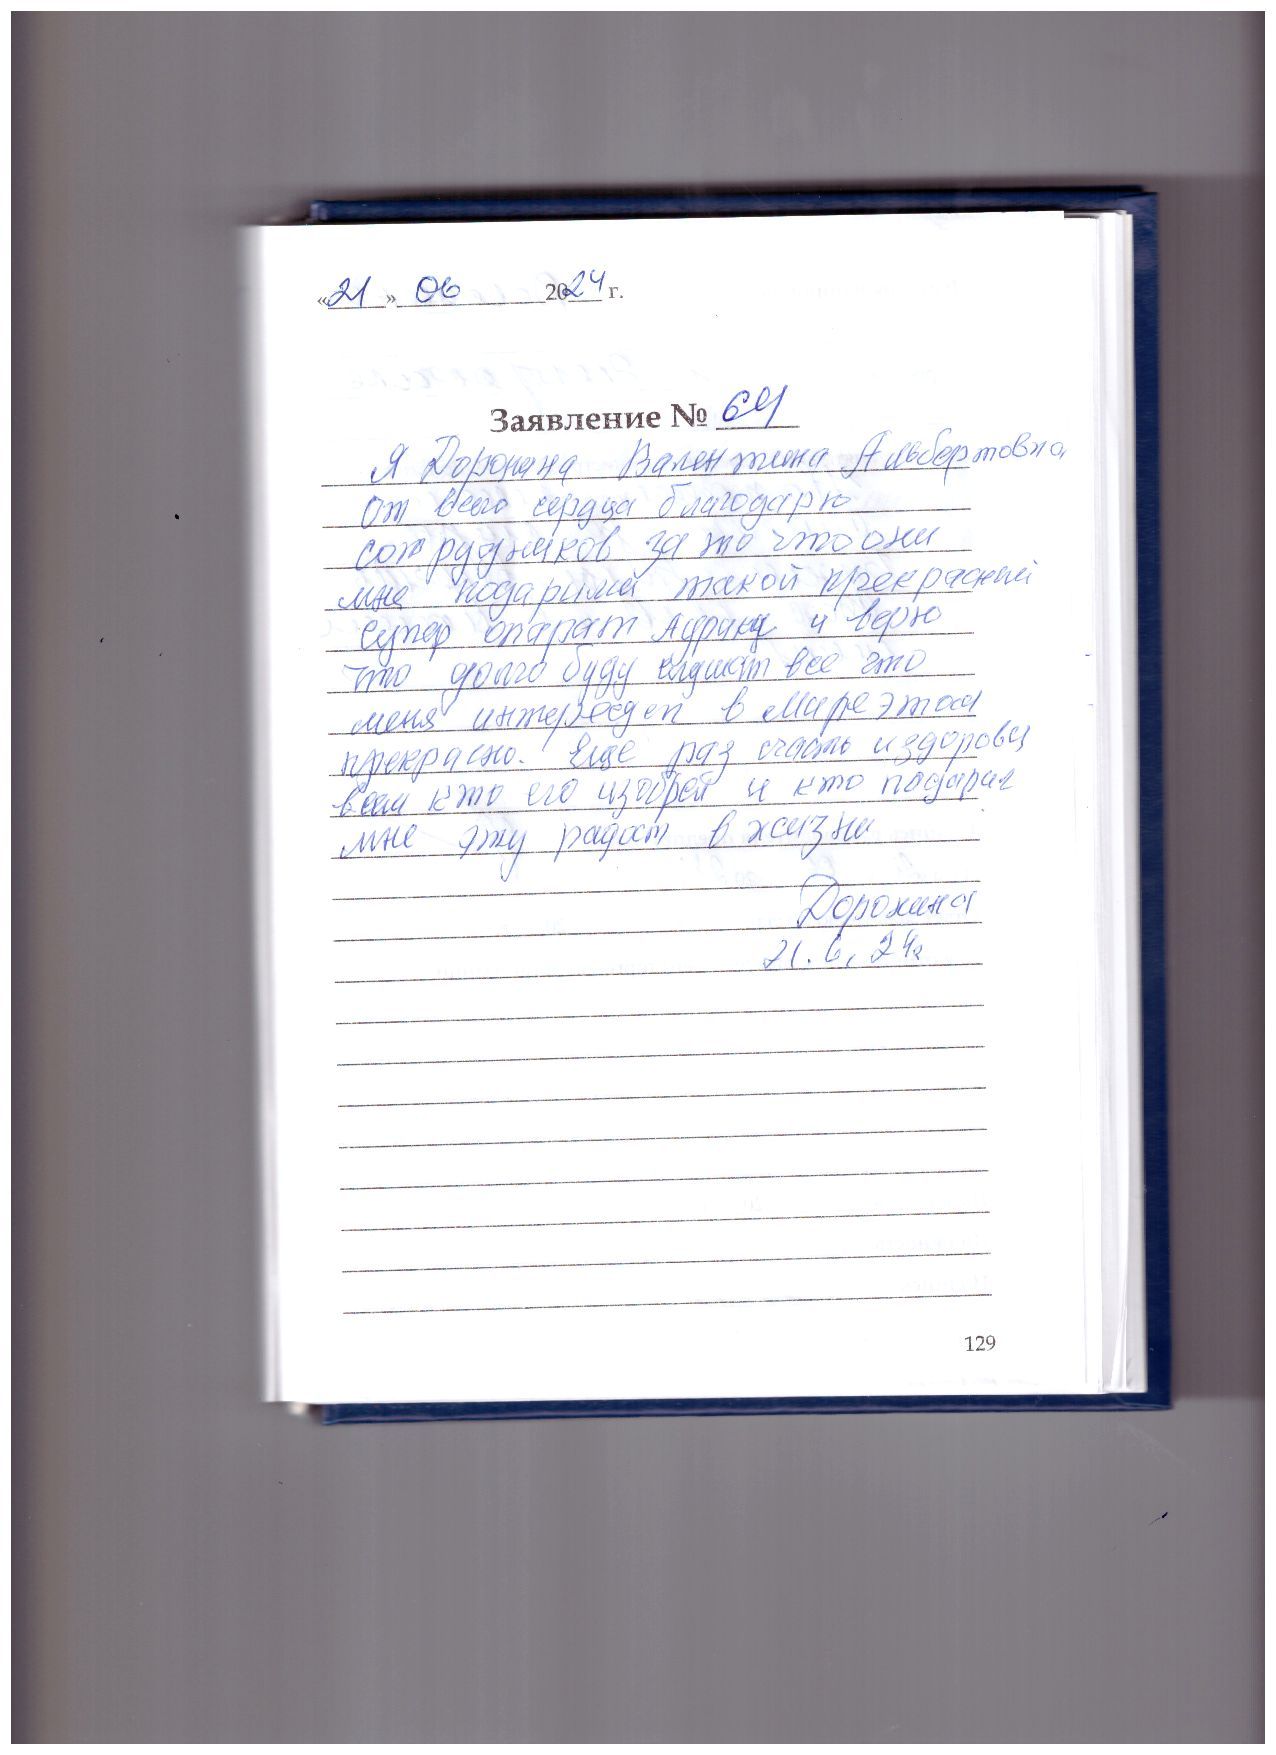 «21» 06 2024 г.
Заявление № 64
Я Доронина Валентина Альбертовна,
От всего сердца благодарю
сотрудников за то что они
мне подарили такой прекрасный
супер опарат и верю
что долго буду слушат все что
меня интереедеп в мире это
прекрасно. Еще раз счасть и здоровя
всем кто его изобрел и кто подарил
мне эту радост в жизни
Доронина
21.6.24г
129